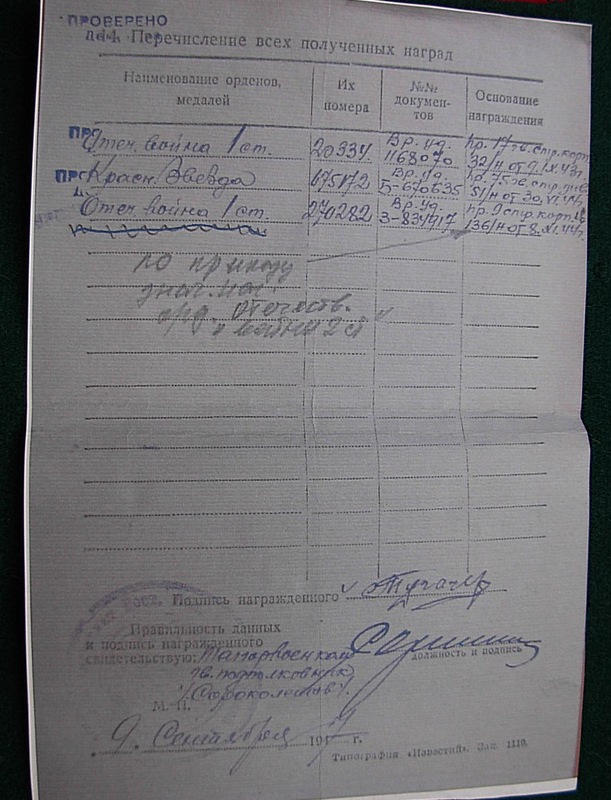 ПРОВЕРЕНО
14. Перечисление всех полученных наград
Наименование орденов, медалей
Их номера
№№ документов
Основание награждения
Отеч. война 1 ст.
20334
Вр. уд. 1168070
32/н от 9.IX.43г.
Красн. Звезда
675172
Вр. уд. Б-670535
51/н от 30.VI.44г.
Отеч. война 1 ст.
270282
Вр. уд. З-834717
136/н от 8.XI.44г.
по приказу
орд. Отечеств.
война 2 ст"
Подпись награжденного
Правильность данных
и подпись награжденного
свидетельствую:
гв. подполковник
должность и подпись
М. П.
9. Сентября 194 г.
Типография «Известий». Зак. 1110.